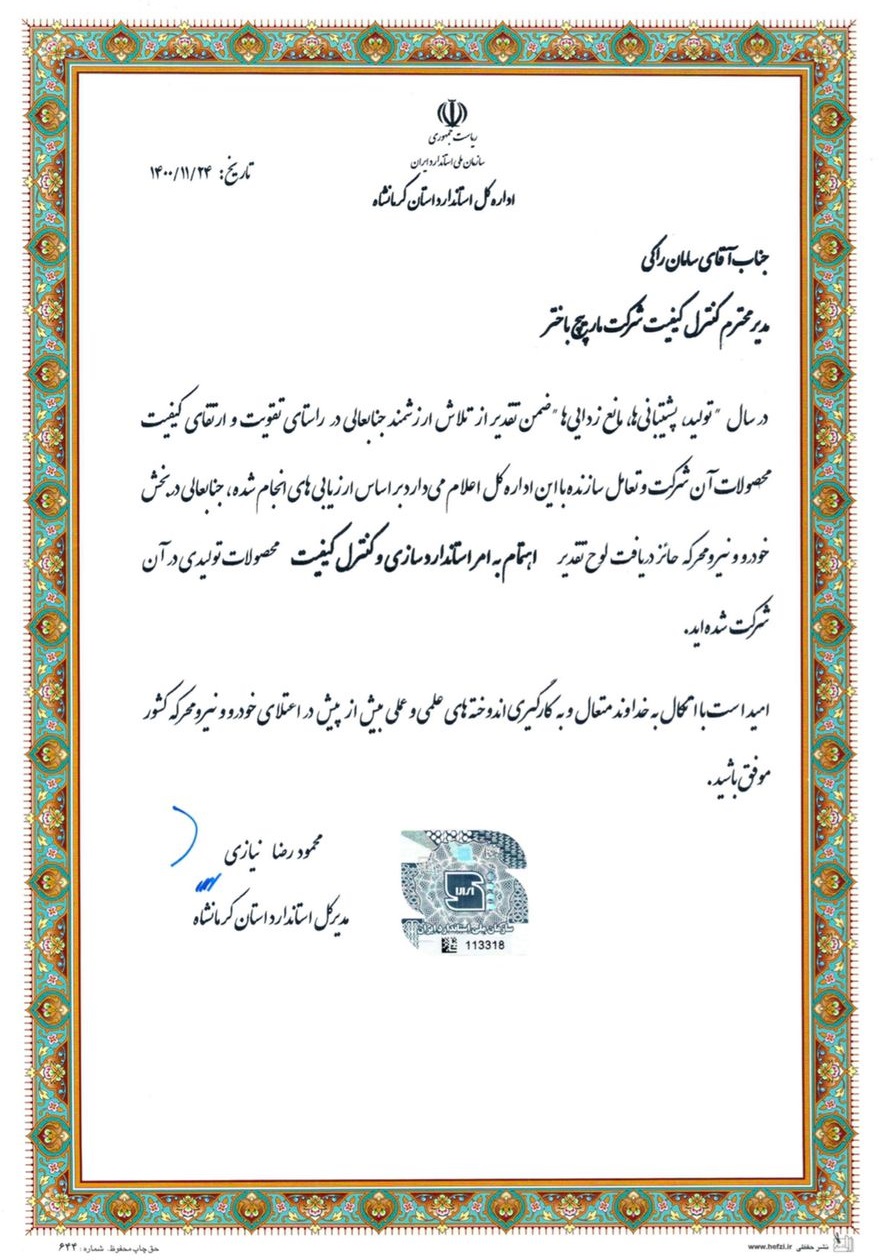 ریاست جمهوری
سازمان ملی استاندارد ایران
اداره کل استاندارد استان کرمانشاه
تاریخ: ۱۴۰۰/۱۱/۲۴
جناب آقای سامان راکی
مدیر محترم کنترل کیفیت شرکت مارپیچ باختر
در سال "تولید، پشتیبانی ها، مانع زدایی ها" ضمن تقدیر از تلاش ارزشمند جنابعالی در راستای تقویت و ارتقای کیفیت
محصولات آن شرکت و تعامل سازنده با این اداره کل اعلام می دارد بر اساس ارزیابی های انجام شده، جنابعالی در بخش
خودرو و نیرومحرکه حائز دریافت لوح تقدیر اهتمام به امر استانداردسازی و کنترل کیفیت محصولات تولیدی در آن
شرکت شده اید.
امید است با اتکال به خداوند متعال و به کارگیری اندوخته های علمی و عملی بیش از پیش در اعتلای خودرو و نیرومحرکه کشور
موفق باشید.
محمود رضا نیازی
مدیرکل استاندارد استان کرمانشاه
ایران
سازمان ملی استاندارد ایران
113318
حق چاپ محفوظ. شماره: ۶۴۴
نشر حفظی www.hefzi.ir